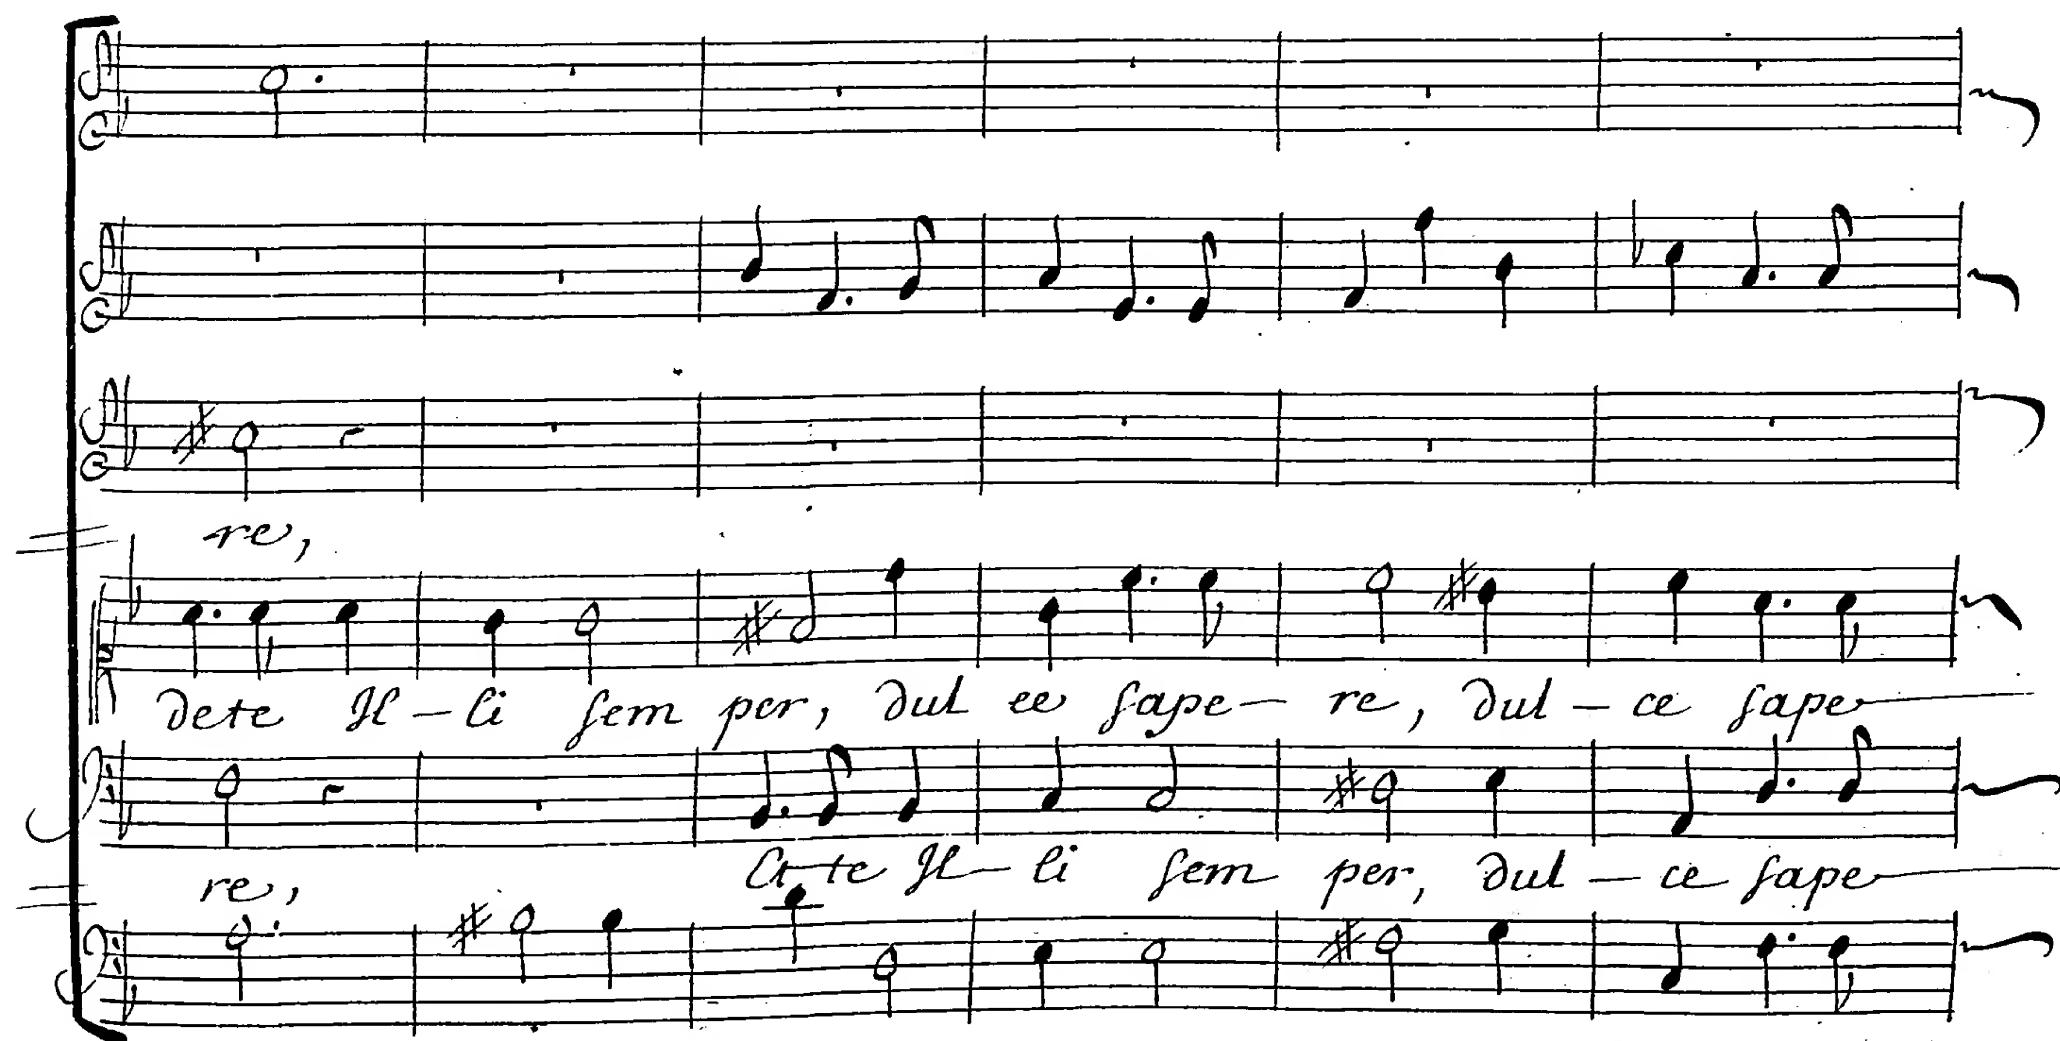 re,
dete Il-li sem per, dul ce sape- re, dul-ce sape
re, Et te Il-li sem per, dul-ce sape